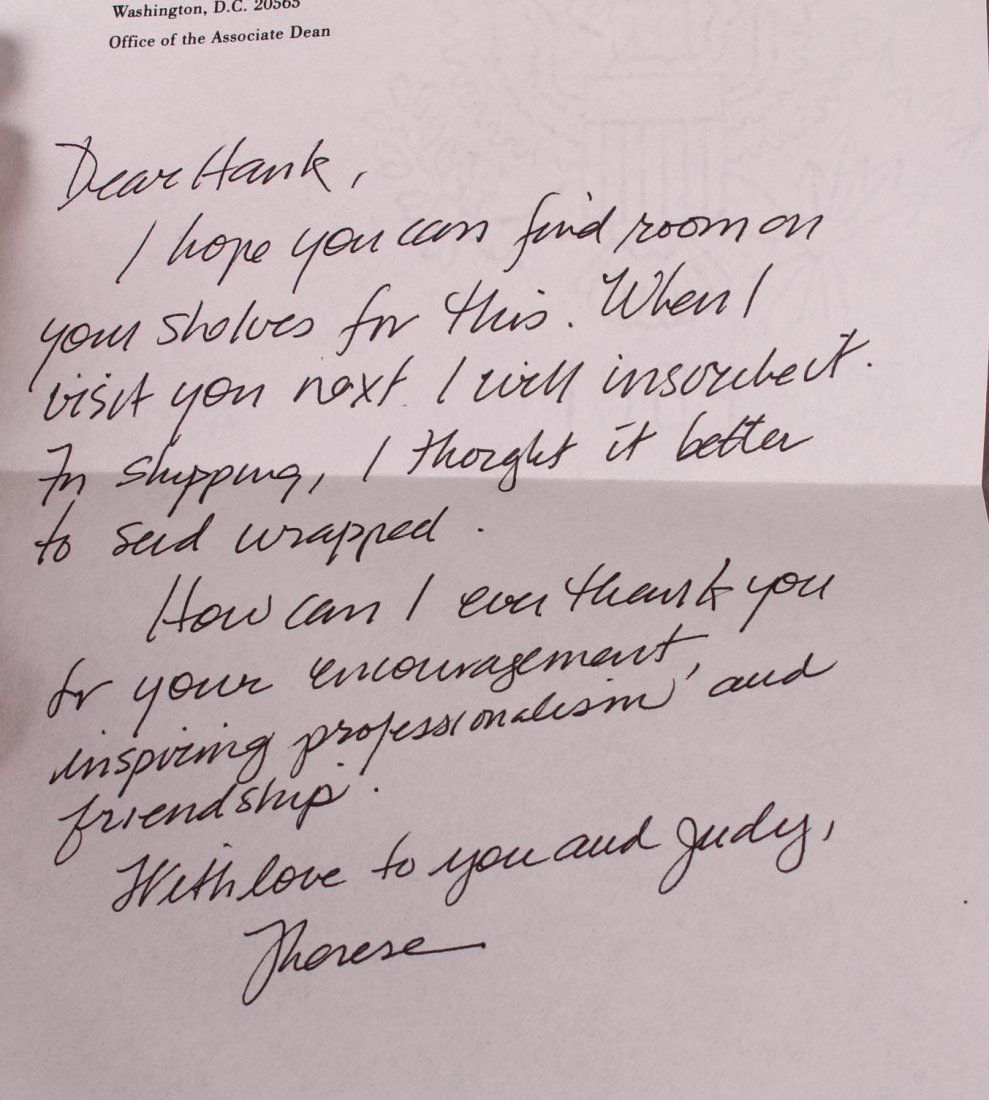 Washington, D.C. 20565
Office of the Associate Dean
Dear Hank,
I hope you can find room on
your shelves for this. When I
visit you next I will inscribe it.
In shipping, I thought it better
to send wrapped.
How can I ever thank you
for your encouragement,
inspiring professionalism and
friendship.
With love to you and Judy,
Therese